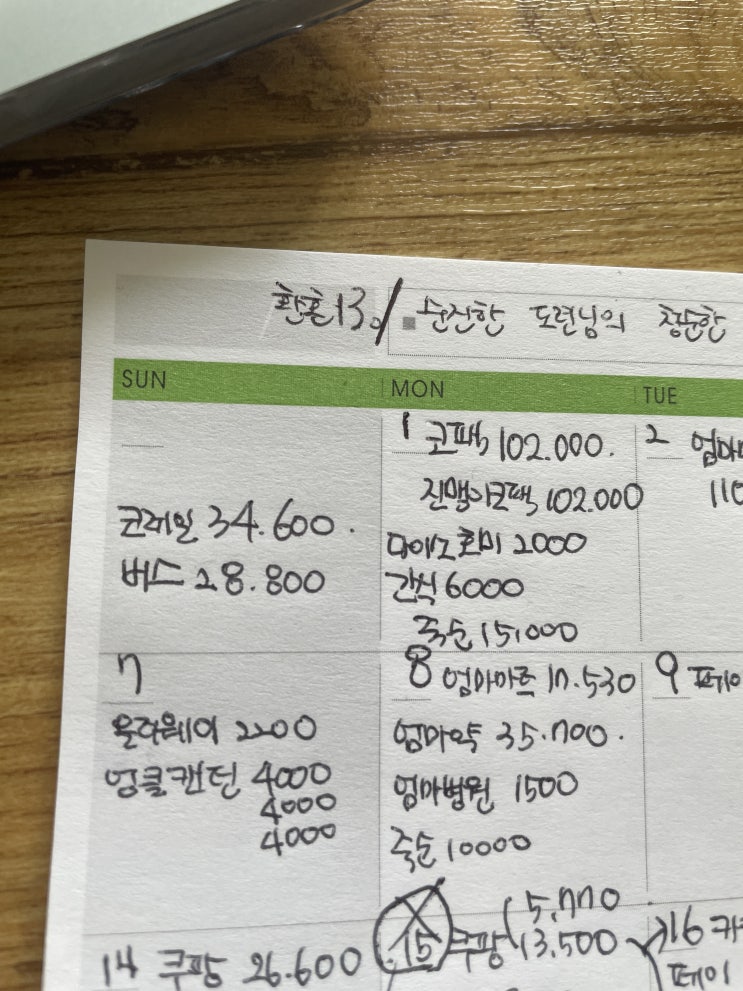 환혼13./ 순진한 도련님의 청순한
SUN MON TUE
1 코팩 102.000.
진맵이코팩 102.000
다이소 호미 2000
간식 6000
죽순 15,000
2 엄마
110
코레일 34.600.
버스 28.800
7
올라웨이 2200
엉클캔틴 4000
4000
4000
8 엄마마트 17.530
엄마약 35.700.
엄마병원 1500
죽순 10000
9 페이
14 쿠팡 26.600
15 쿠팡 5,770
13,500
16
페이